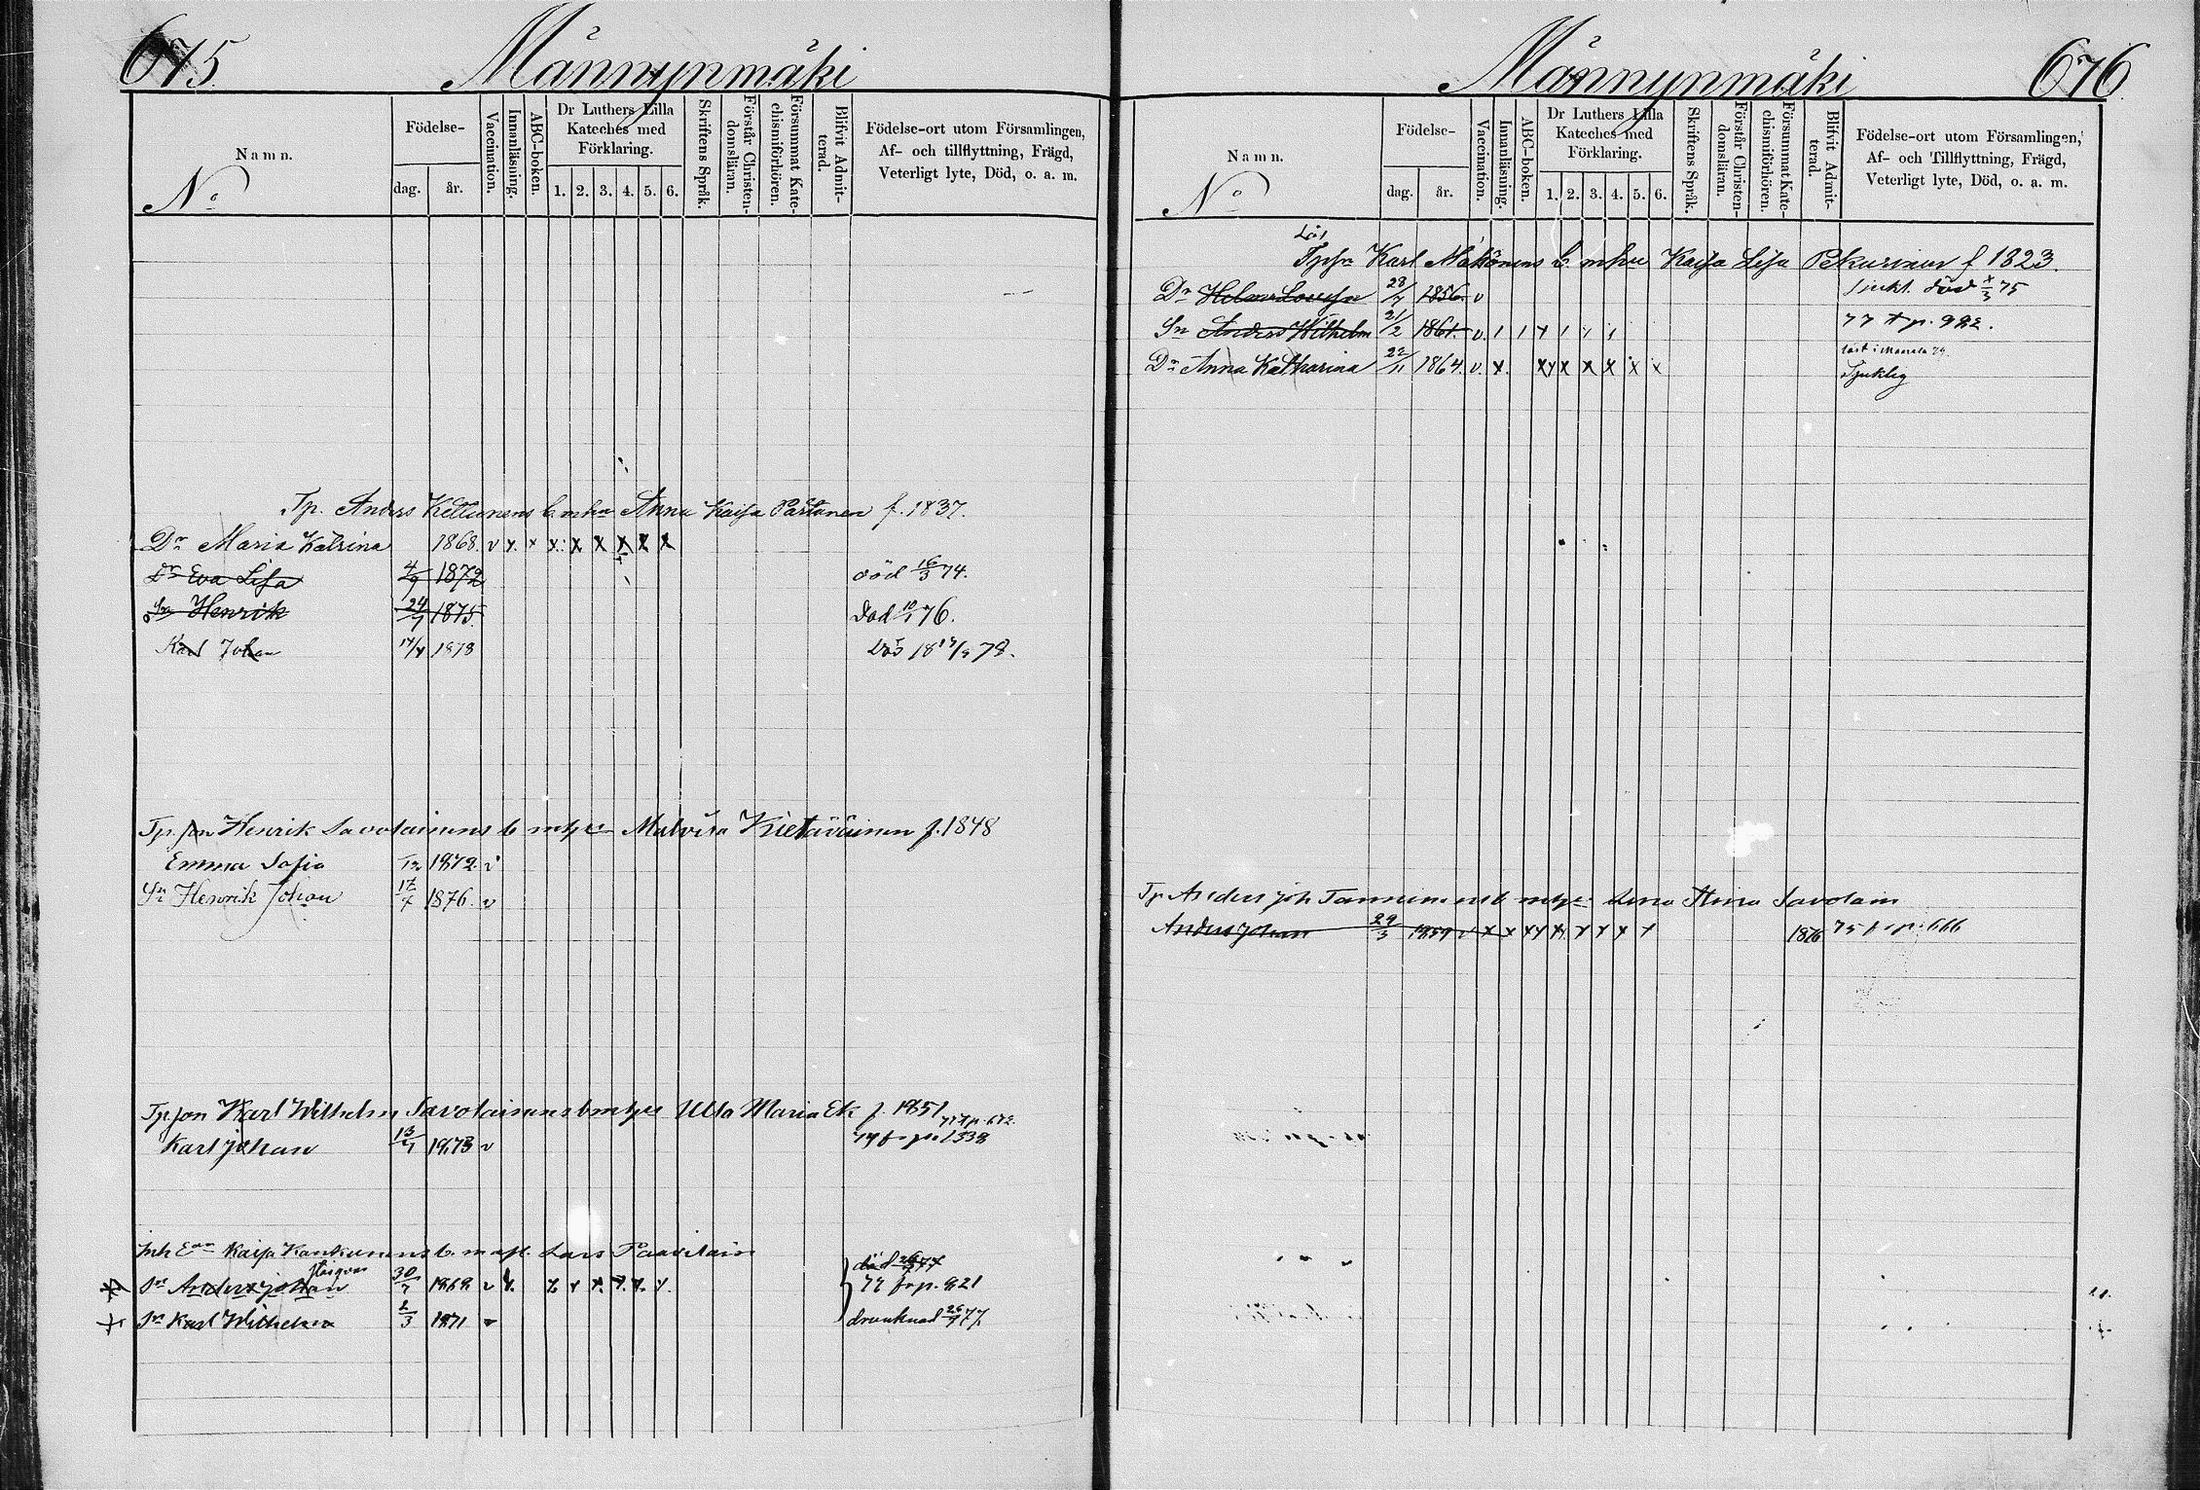 675.
Männynmäki
Namn.
No
Födelse-
dag.
år.
Vaccination.
Innanläsning.
ABC-boken.
Dr Luthers Lilla
Kateches med
Förklaring.
1. 2. 3. 4. 5. 6.
Skriftens Språk.
Förstår Christen-
domsläran.
Försummat Kate-
chismiförhören.
Blifvit Admit-
terad.
Födelse-ort utom Församlingen,
Af- och tillflyttning, Frägd,
Veterligt lyte, Död, o. a. m.
Tp. Anders Kettunens b. m hu Anna Kaisa Partanen f. 1837.
Dr Maria Katrina 1868. v x. x x. x x x x x
Dr Eva Lisa 4/9 1872 död 16/3 74.
Sn Henrik 24/7 1875. död 10/1 76.
Karl Johan 1878 Död 78.
Tp. son Henrik Savolainens b m Malvina Kietäväinen f. 1848
Emma Sofia 1872. v
Sn Henrik Johan 17/7 1876. v
Tp. son Karl Wilhelm Savolainens b m Ulla Maria Ek f. 1851
77 t p. 672.
Karl Johan 13/7 1873 v 74 fr p. 1338
Inh Kaisa b. m Lars Paavilain
död 26/7 77
Sn Anders Johan 30/7 1868 v x. x x x. x. x. x. 77 fr p. 821
Sn Karl Wilhelm 2/3 1871 v drunknad 26/7 77.
676
Männynmäki
Namn.
No
Födelse-
dag.
år.
Vaccination.
Innanläsning.
ABC-boken.
Dr Luthers Lilla
Kateches med
Förklaring.
1. 2. 3. 4. 5. 6.
Skriftens Språk.
Förstår Christen-
domsläran.
Försummat Kate-
chismiförhören.
Blifvit Admit-
terad.
Födelse-ort utom Församlingen,
Af- och Tillflyttning, Frägd,
Veterligt lyte, Död, o. a. m.
Karl b. m hu Kaisa Lisa Pekurinen f 1823.
Dr Helena Lovisa 28/7 1856. v sjukl. död 75
Sn Anders Wilhelm 21/2 1861. v. 77 t p. 922.
Dr Anna Katharina 22/11 1864. v. x. x x x x x x x
Sjuklig
Tp Anders Joh Tanninens b m Lena Stina Savolain
Anders Johan 29/3 1859 v x x x x x x x x x 1876 75 fr p. 666